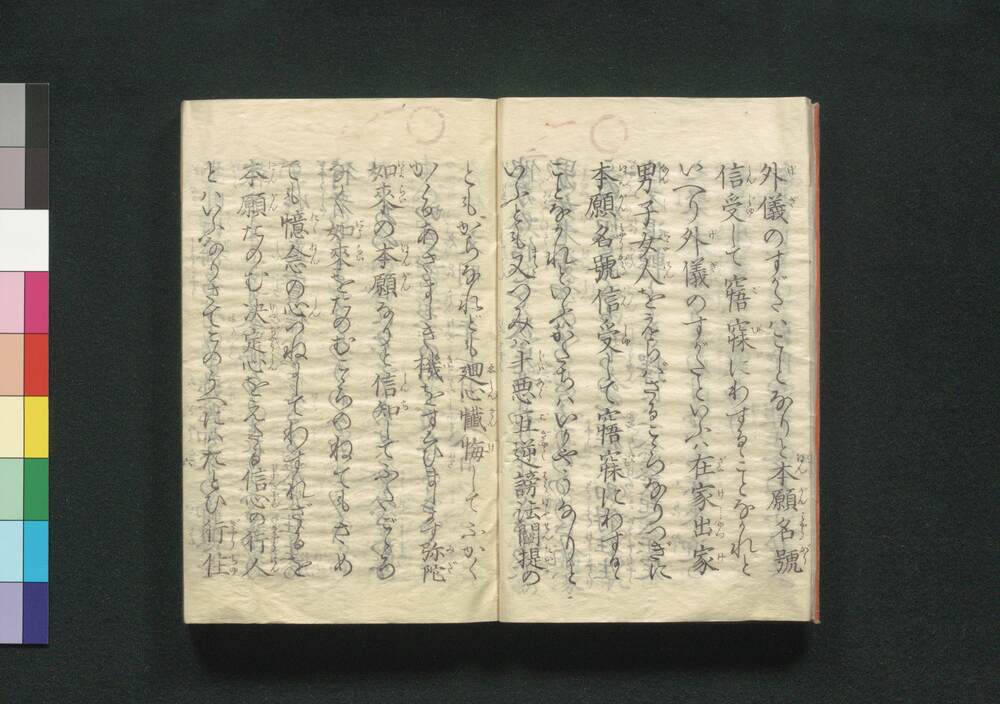 外儀のすがたはことなりと本願名號
信受して寤寐にわするゝことなかれと
いへり外儀のすがたといふは在家出家
男子女人をえらばざるこゝろなりつぎに
本願名號信受して寤寐にわするゝ
ことなかれといふはかたちはいかやうなりと
いふとも又つみは十悪五逆謗法闡提の
ともがらなれども廻心懺悔してふかく
かゝるあさましき機をすくひまします弥陀
如來の本願なりと信知してふたごゝろ
なく如來をたのむこゝろのねてもさめ
ても憶念の心つねにしてわすれざるを
本願たのむ決定心をえたる信心の行人
とはいふなりさてこのうへにはたとひ行住